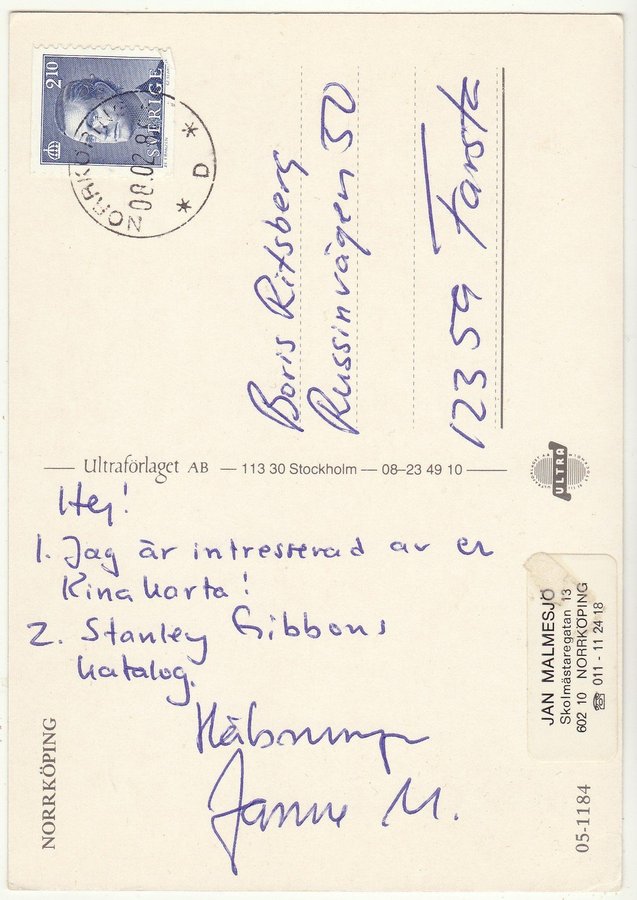 2.10
SVERIGE
NORRKÖPING
08.02.86
* D *
Boris Ritsberg
Russinvägen 50
123 59 Farsta
Ultraförlaget AB — 113 30 Stockholm — 08–23 49 10
ULTRA
Hej!
1. Jag är intresserad av er
Kina karta!
2. Stanley Gibbons
katalog.
Hälsningar
Janne M.
JAN MALMESJÖ
Skolmästaregatan 13
602 10 NORRKÖPING
☏ 011 - 11 24 18
NORRKÖPING
05-1184